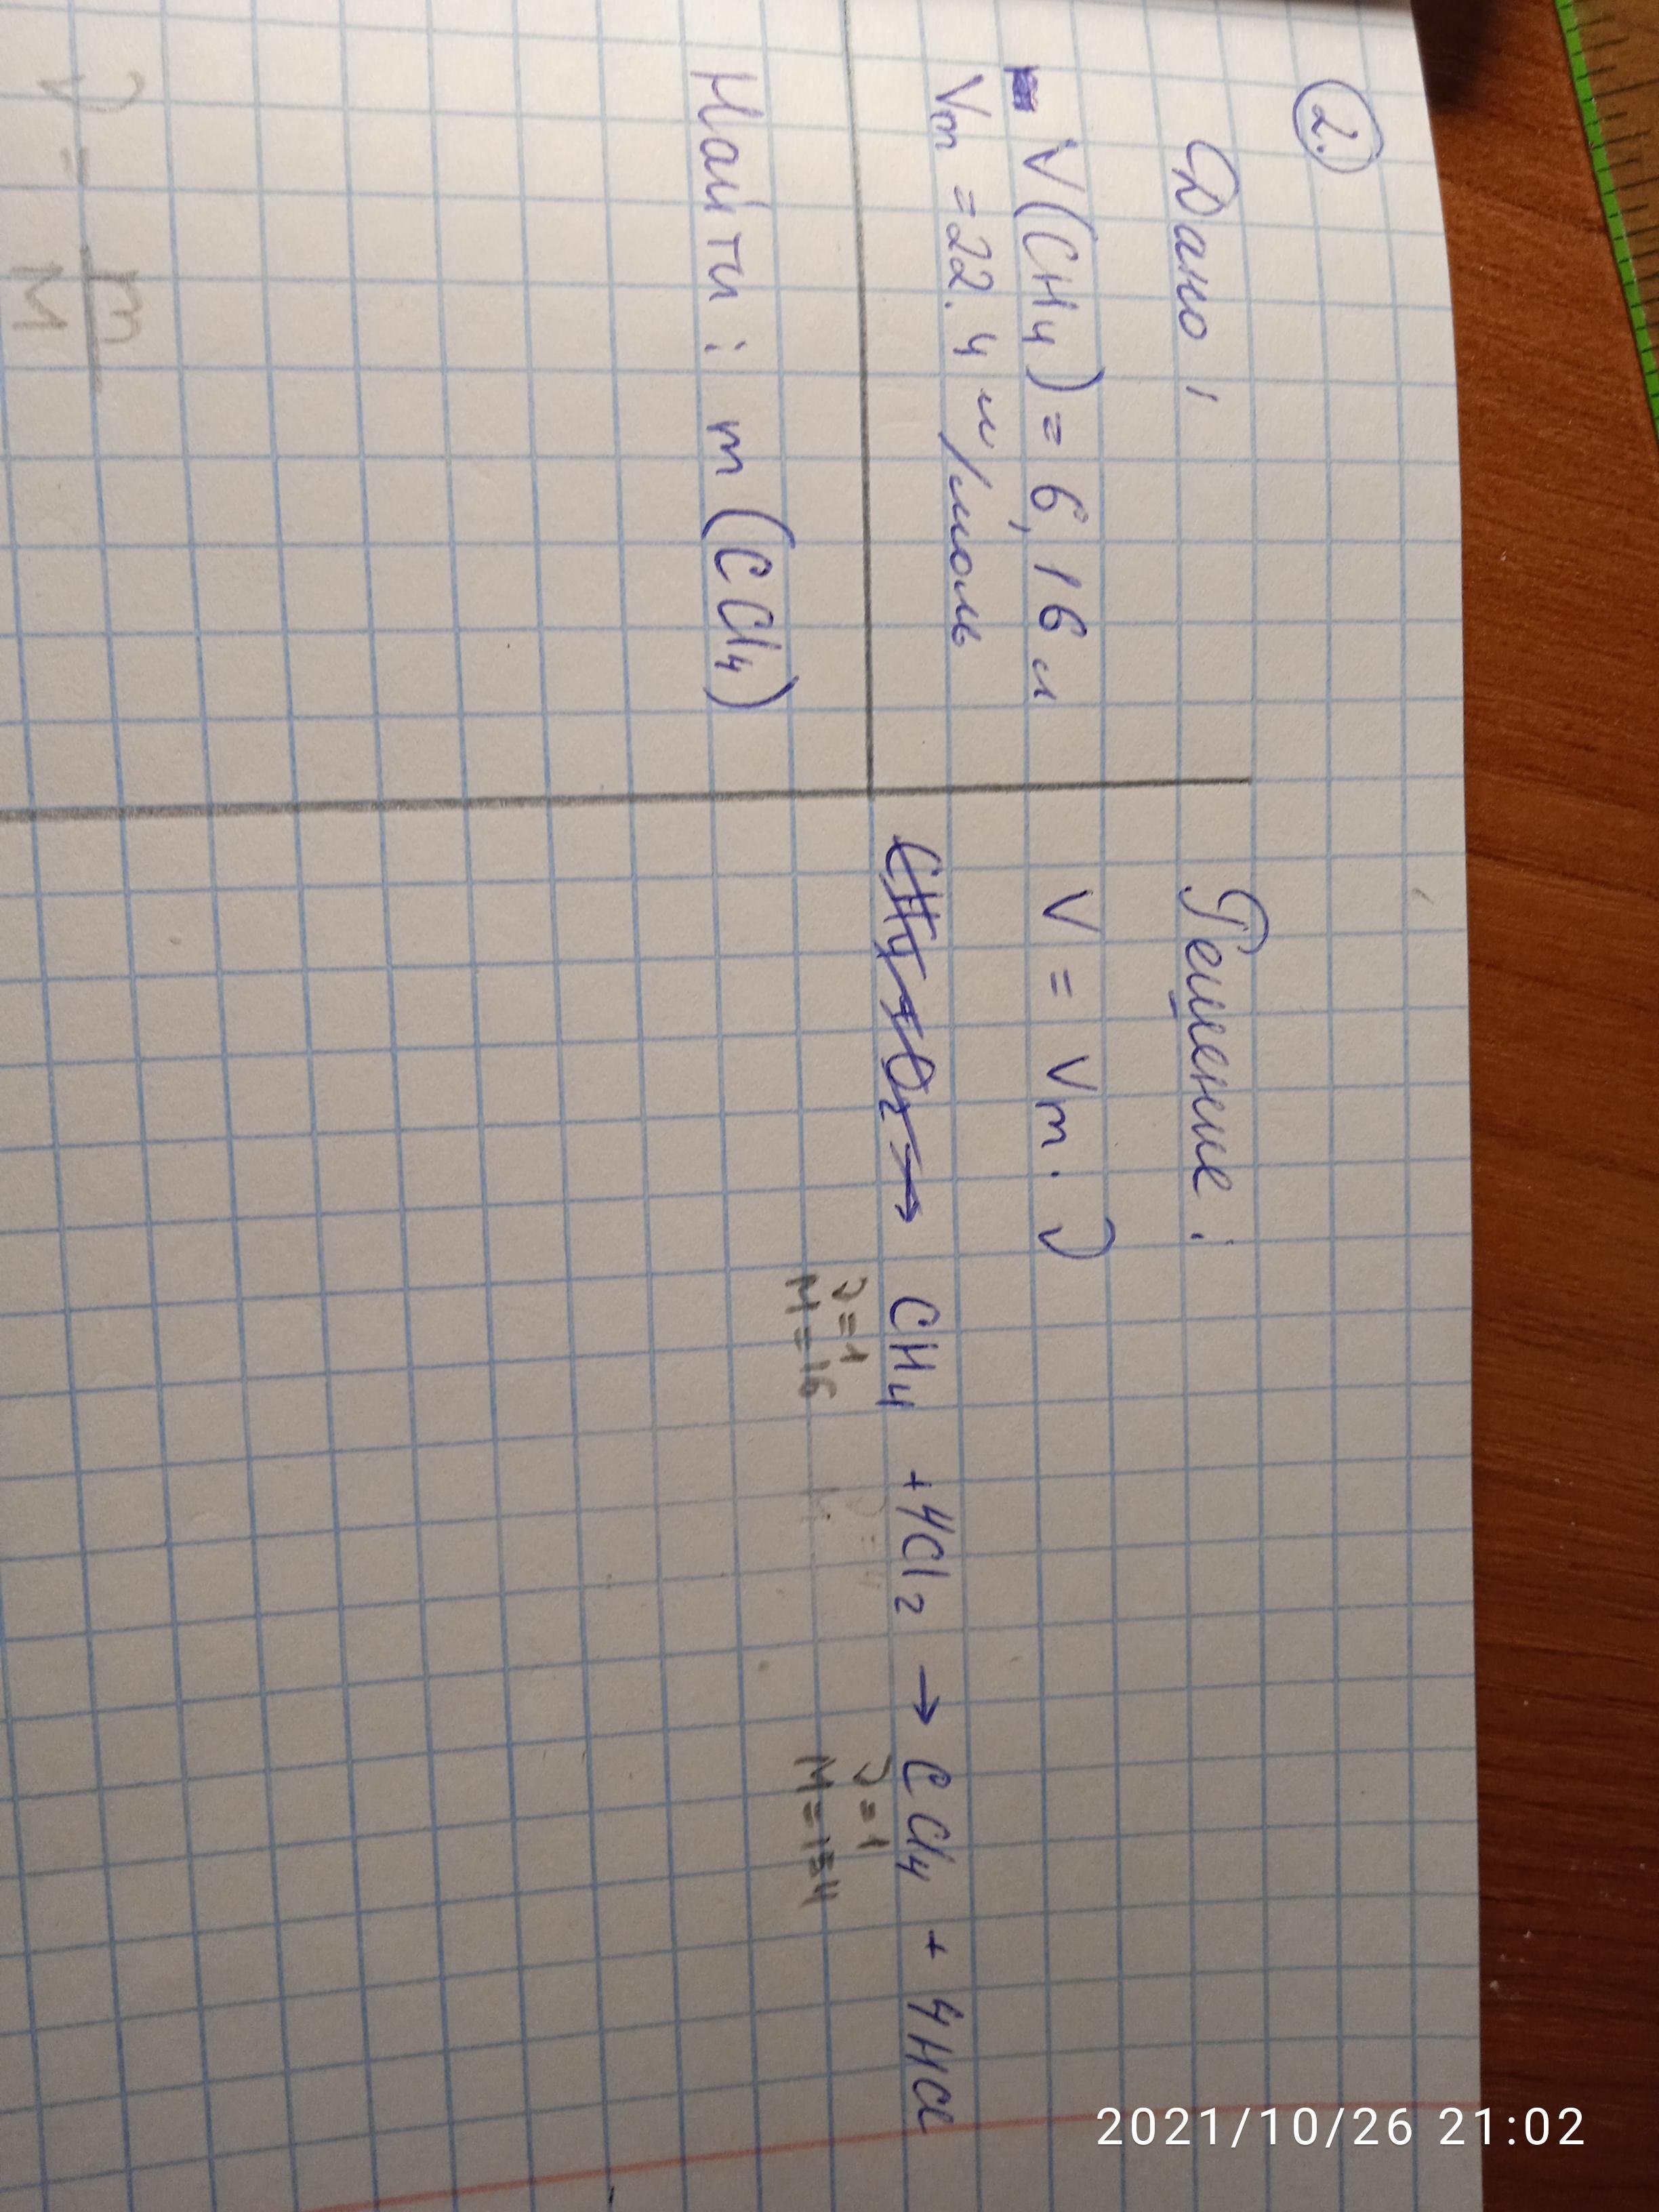 2.
Дано:
V(CH4) = 6,16 л
Vm = 22.4 л/моль
Найти: m(CCl4)
ν = m
M
Решение:
V = Vm · ν
CH4 + O2 →
CH4 + 4Cl2 → CCl4 + 4HCl
ν=1
M=16
ν=1
M=154
2021/10/26 21:02